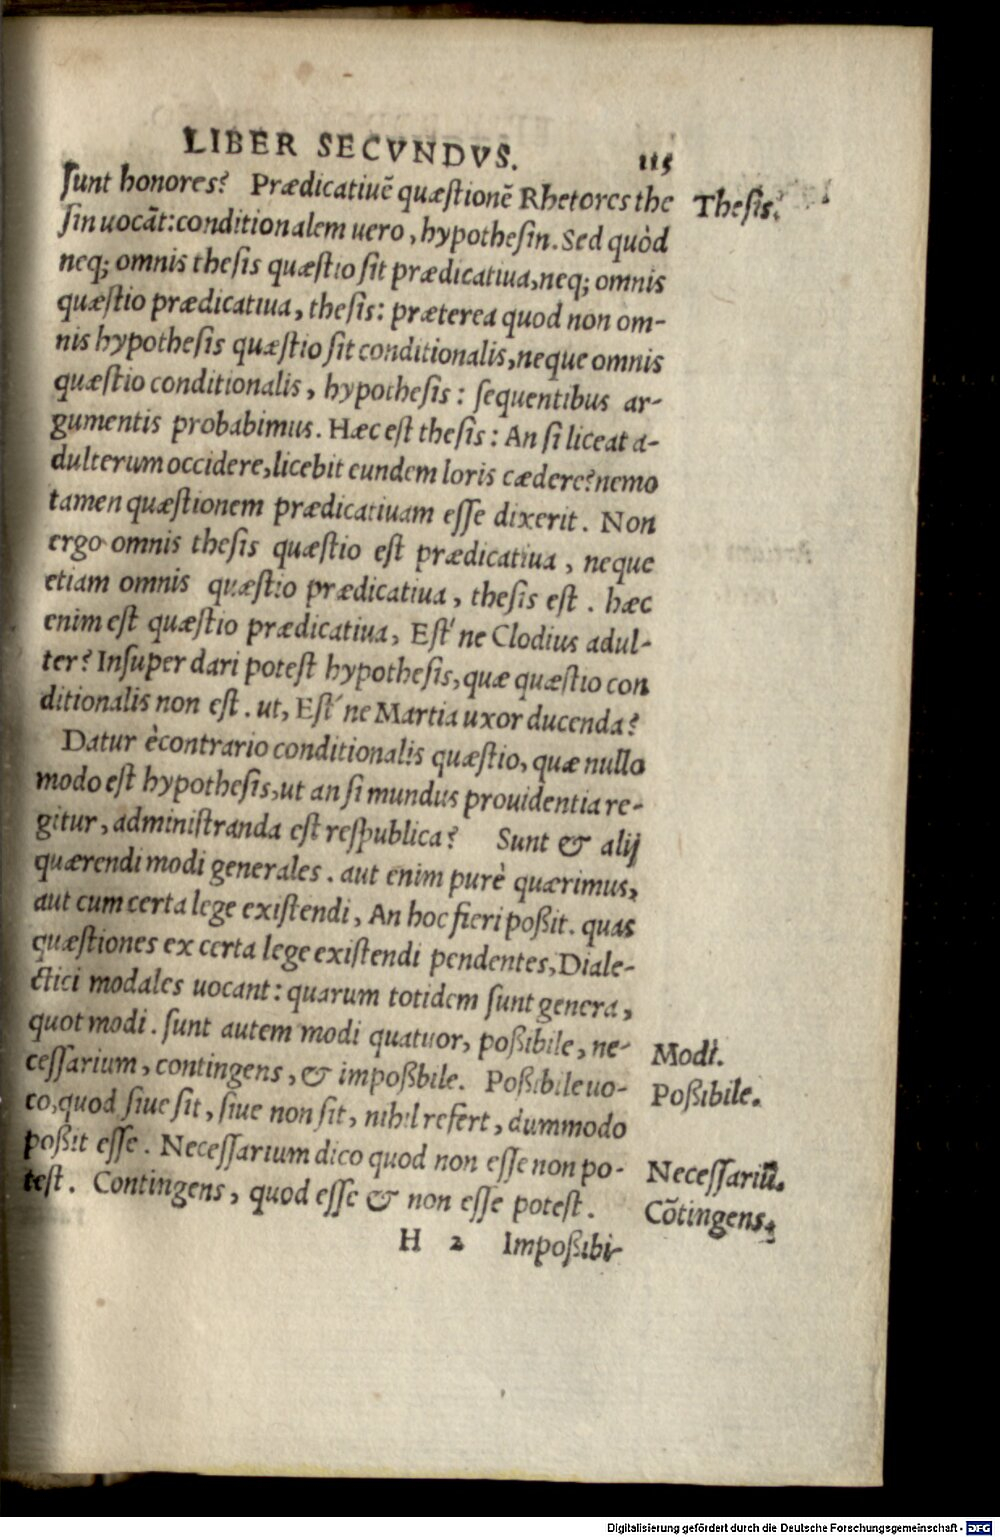 LIBER SECVNDVS. 115
sunt honores? Prædicatiuē quæstionē Rhetores the Thesis.
sin uocāt: conditionalem uero, hypothesin. Sed quòd
neq; omnis thesis quæstio sit prædicatiua, neq; omnis
quæstio prædicatiua, thesis: præterea quod non om-
nis hypothesis quæstio sit conditionalis, neque omnis
quæstio conditionalis, hypothesis: sequentibus ar-
gumentis probabimus. Hæc est thesis: An si liceat a-
dulterum occidere, licebit eundem loris cædere? nemo
tamen quæstionem prædicatiuam esse dixerit. Non
ergo omnis thesis quæstio est prædicatiua, neque
etiam omnis quæstio prædicatiua, thesis est. hæc
enim est quæstio prædicatiua, Est'ne Clodius adul-
ter? Insuper dari potest hypothesis, quæ quæstio con
ditionalis non est. ut, Est'ne Martia uxor ducenda?
Datur ècontrario conditionalis quæstio, quæ nullo
modo est hypothesis, ut an si mundus prouidentia re-
gitur, administranda est respublica? Sunt & alij
quærendi modi generales. aut enim purè quærimus,
aut cum certa lege existendi, An hoc fieri poßit. quas
quæstiones ex certa lege existendi pendentes, Diale-
ctici modales uocant: quarum totidem sunt genera,
quot modi. sunt autem modi quatuor, poßibile, ne- Modi.
cessarium, contingens, & impoßbile. Poßibile uo- Poßibile.
co, quod siue sit, siue non sit, nihil refert, dummodo
poßit esse. Necessarium dico quod non esse non po- Necessariū.
test. Contingens, quod esse & non esse potest. Cōtingens.
H 2 Impoßibi-
Digitalisierung gefördert durch die Deutsche Forschungsgemeinschaft - DFG